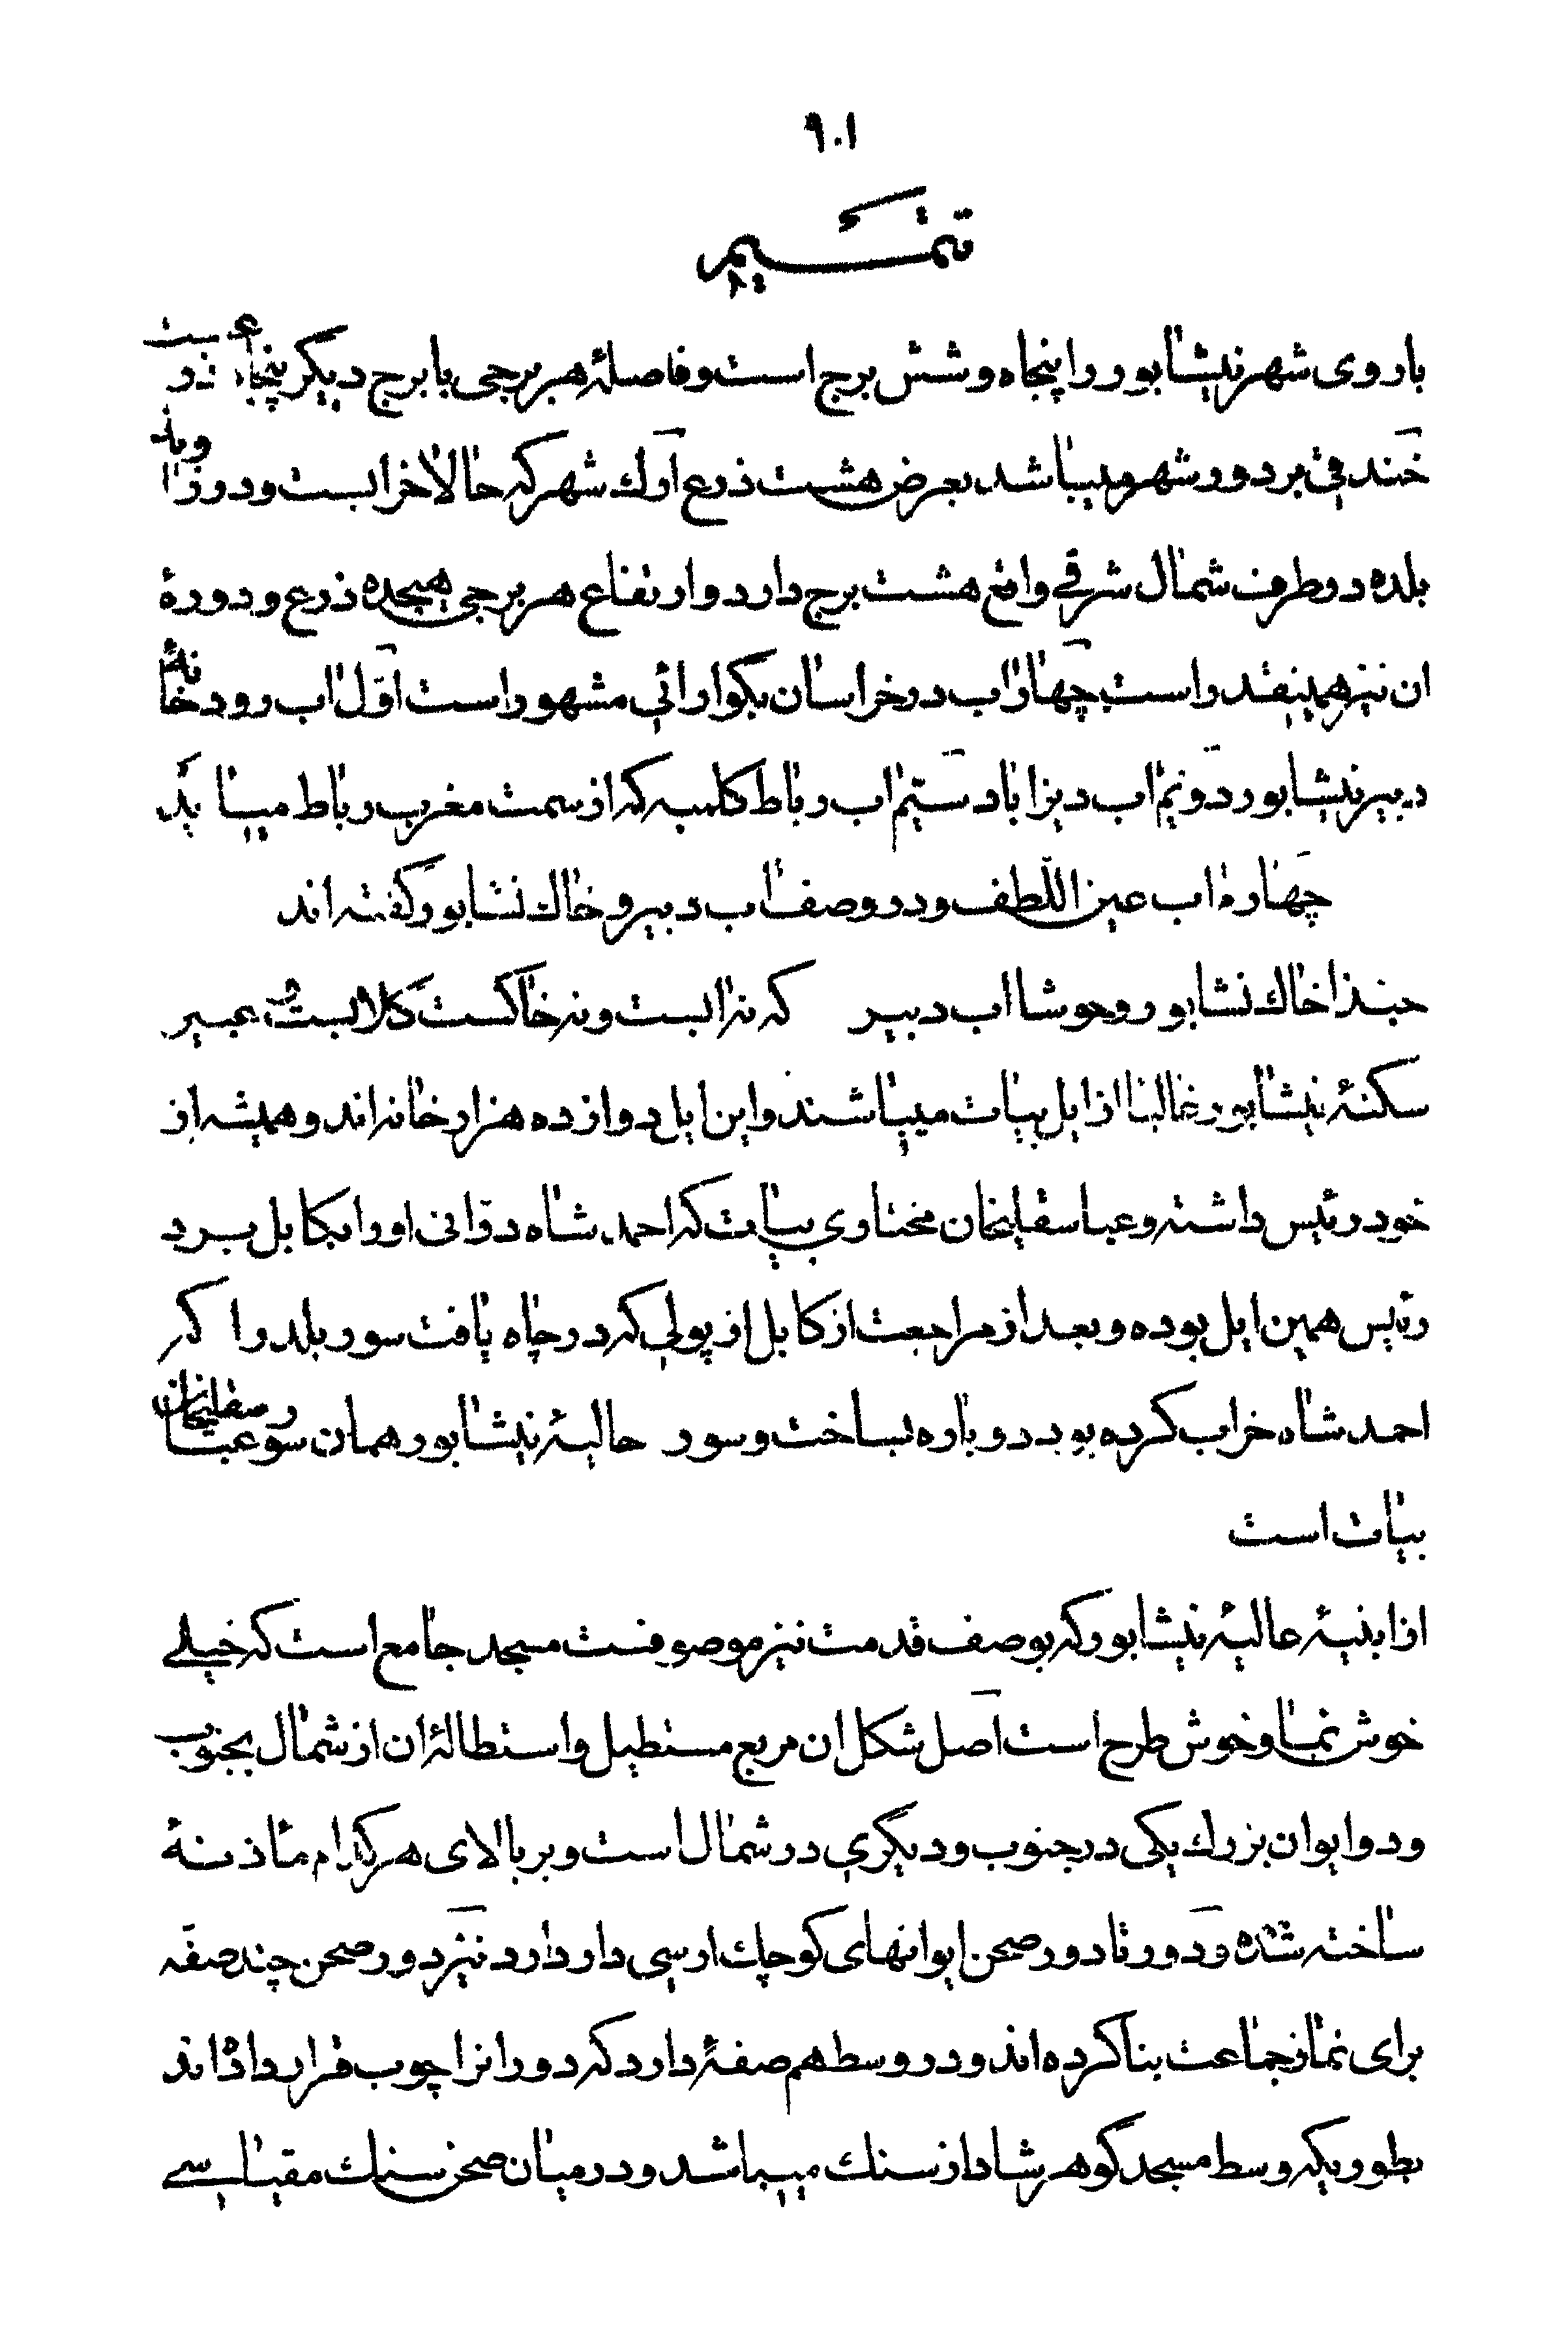 ۹۰۱
تتمیم
باروی شهر نیشابور را پنجاه و شش برج است و فاصلهٔ هر برجی با برج دیگر پنجاه ذرعست و
خندقی بر دور شهر میباشد بعرض هشت ذرع ارك شهر که حالا خرابست و در وراء
بلده در طرف شمال شرقی واقع هشت برج دارد و ارتفاع هر برجی هیجده ذرع و دورهٔ
ان نیز همینقدر است چهار اب در خراسان بگوارائی مشهور است اوّل اب رودخانهٔ
دبیر نیشابور دوّیم اب دیزاباد سیّم اب رباط کلسه که از سمت مغرب رباط میاید
چهارم اب عین اللّطف و در وصف اب دبیر و خاك نشابور گفته اند
حبّذا خاك نشابور و خوشا اب دبیر که نه ابست و نه خاکست گلابست و عبیر
سکنهٔ نیشابور غالبا از ایل بیات میباشند و این ایل دوازده هزار خانه اند و همیشه از
خود رئیس داشته و عباسقلیخان مختاری بیات که احمد شاه درّانی او را بکابل برد
رئیس همین ایل بوده و بعد از مراجعت از کابل از پولی که در چاه یافت سور بلد را که
احمد شاه خراب کرده بود دوباره بساخت و سور حالیهٔ نیشابور همان سور عباسقلیخان
بیات است
از ابنیهٔ عالیهٔ نیشابور که بوصف قدمت نیز موصوفست مسجد جامع است که خیلی
خوش نما و خوش طرح است اصل شکل ان مربع مستطیل و استطالهٔ ان از شمال بجنوب
و دو ایوان بزرك یکی در جنوب و دیگری در شمال است و بر بالای هر کدام مأذنهٔ
ساخته شده و دور تا دور صحن ایوانهای کوچك ارسی دار دارد نیز دور صحن چند صفّه
برای نماز جماعت بنا کرده اند و در وسط هم صفهٔ دارد که دور انرا چوب قرار داده اند
بطوریکه وسط مسجد گوهر شاد از سنك میباشد و در میان صحن سنك مقیاسی